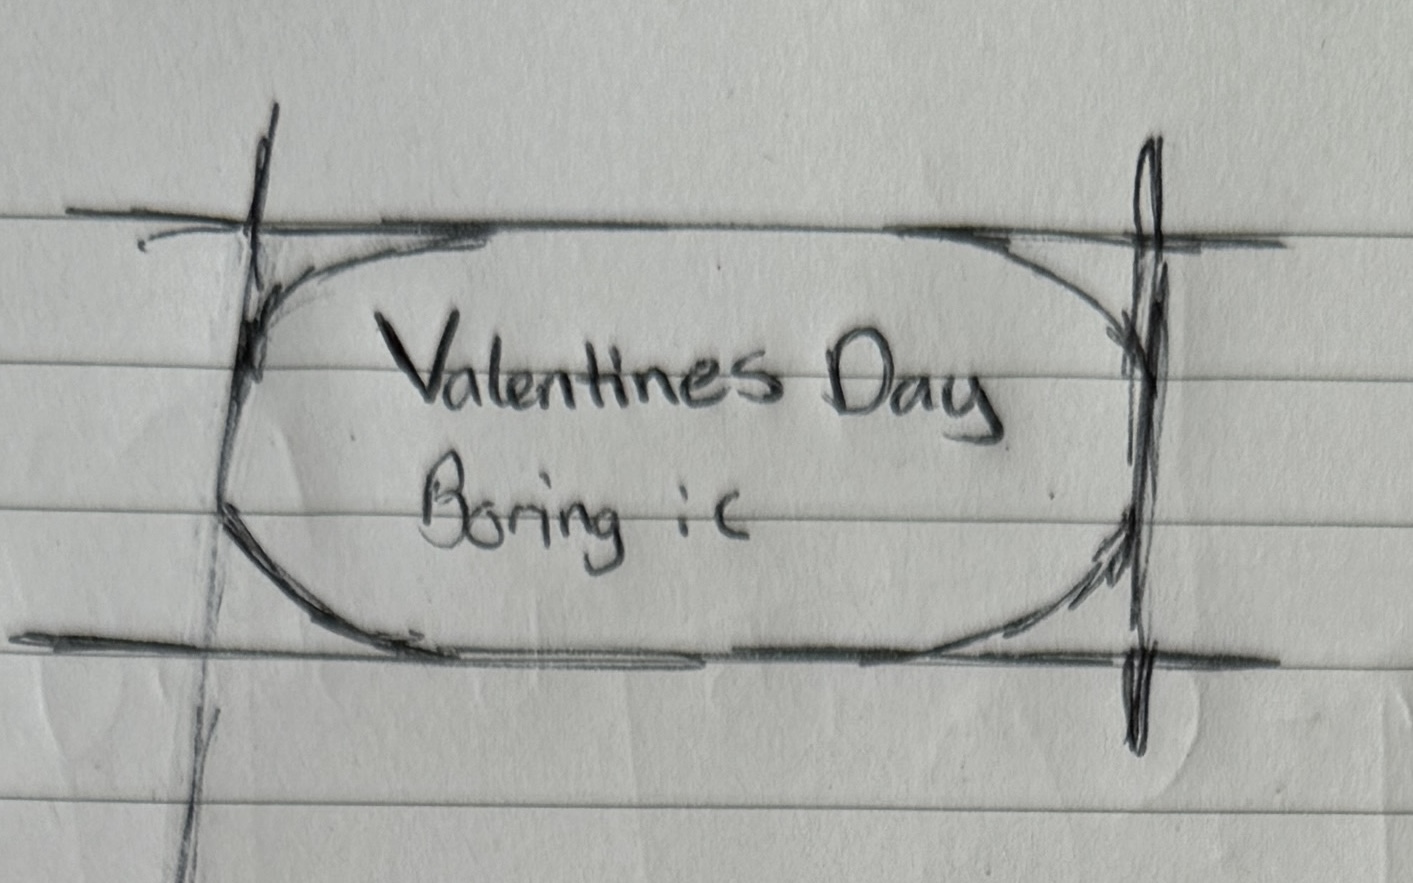 Valentines Day
Boring :C